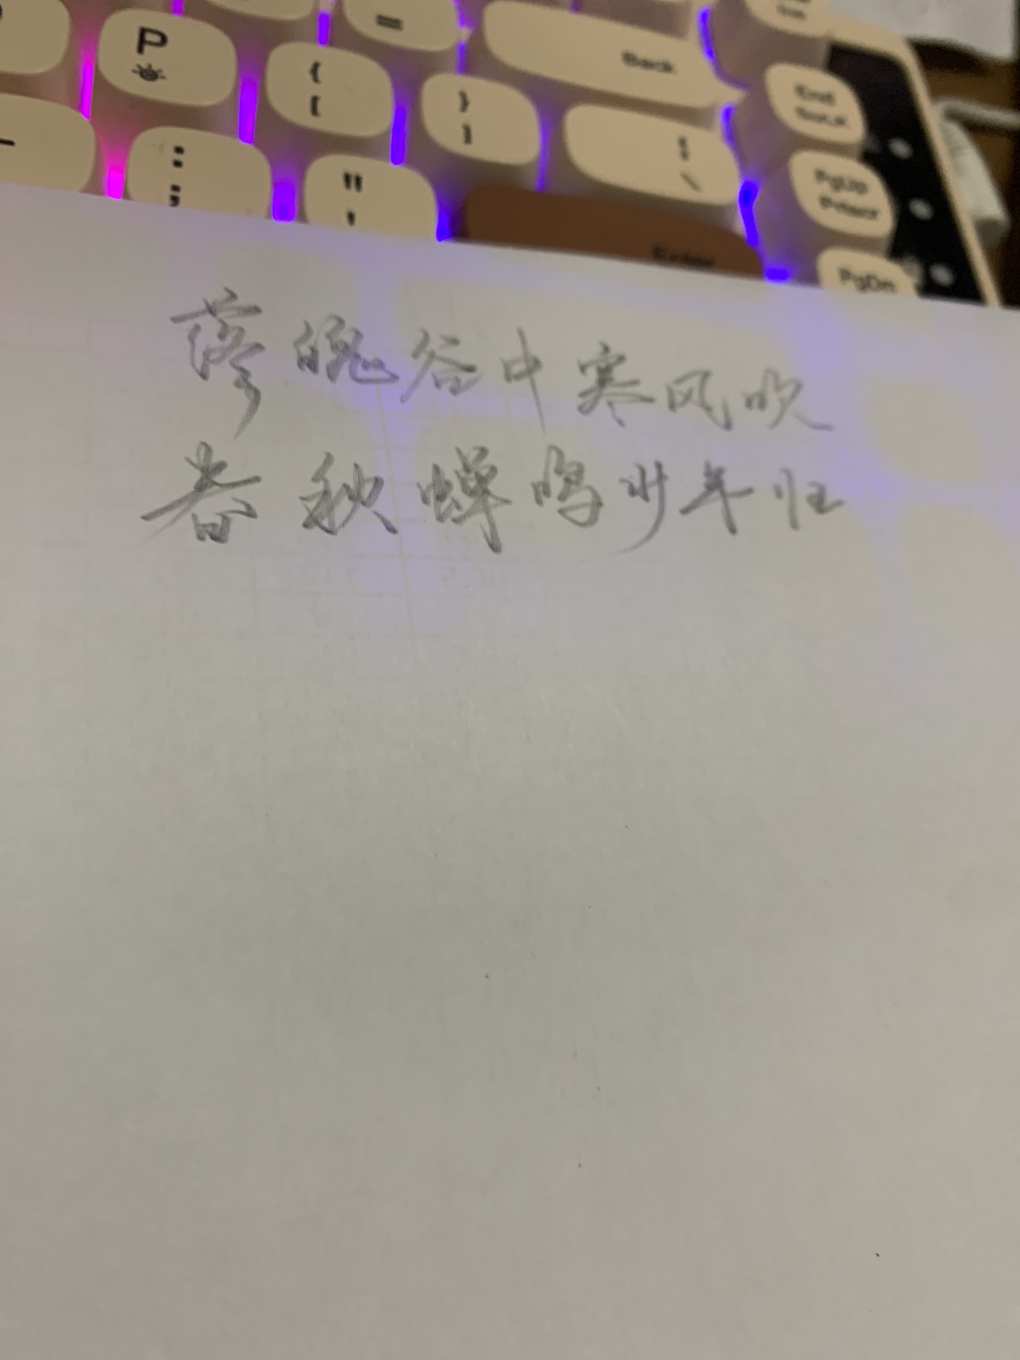 =
P
{
[
}
]
Back
|
\
End
:
;
"
'
Enter
PgUp
PrtScr
PgDn
落魄谷中寒风吹
春秋蝉鸣少年归